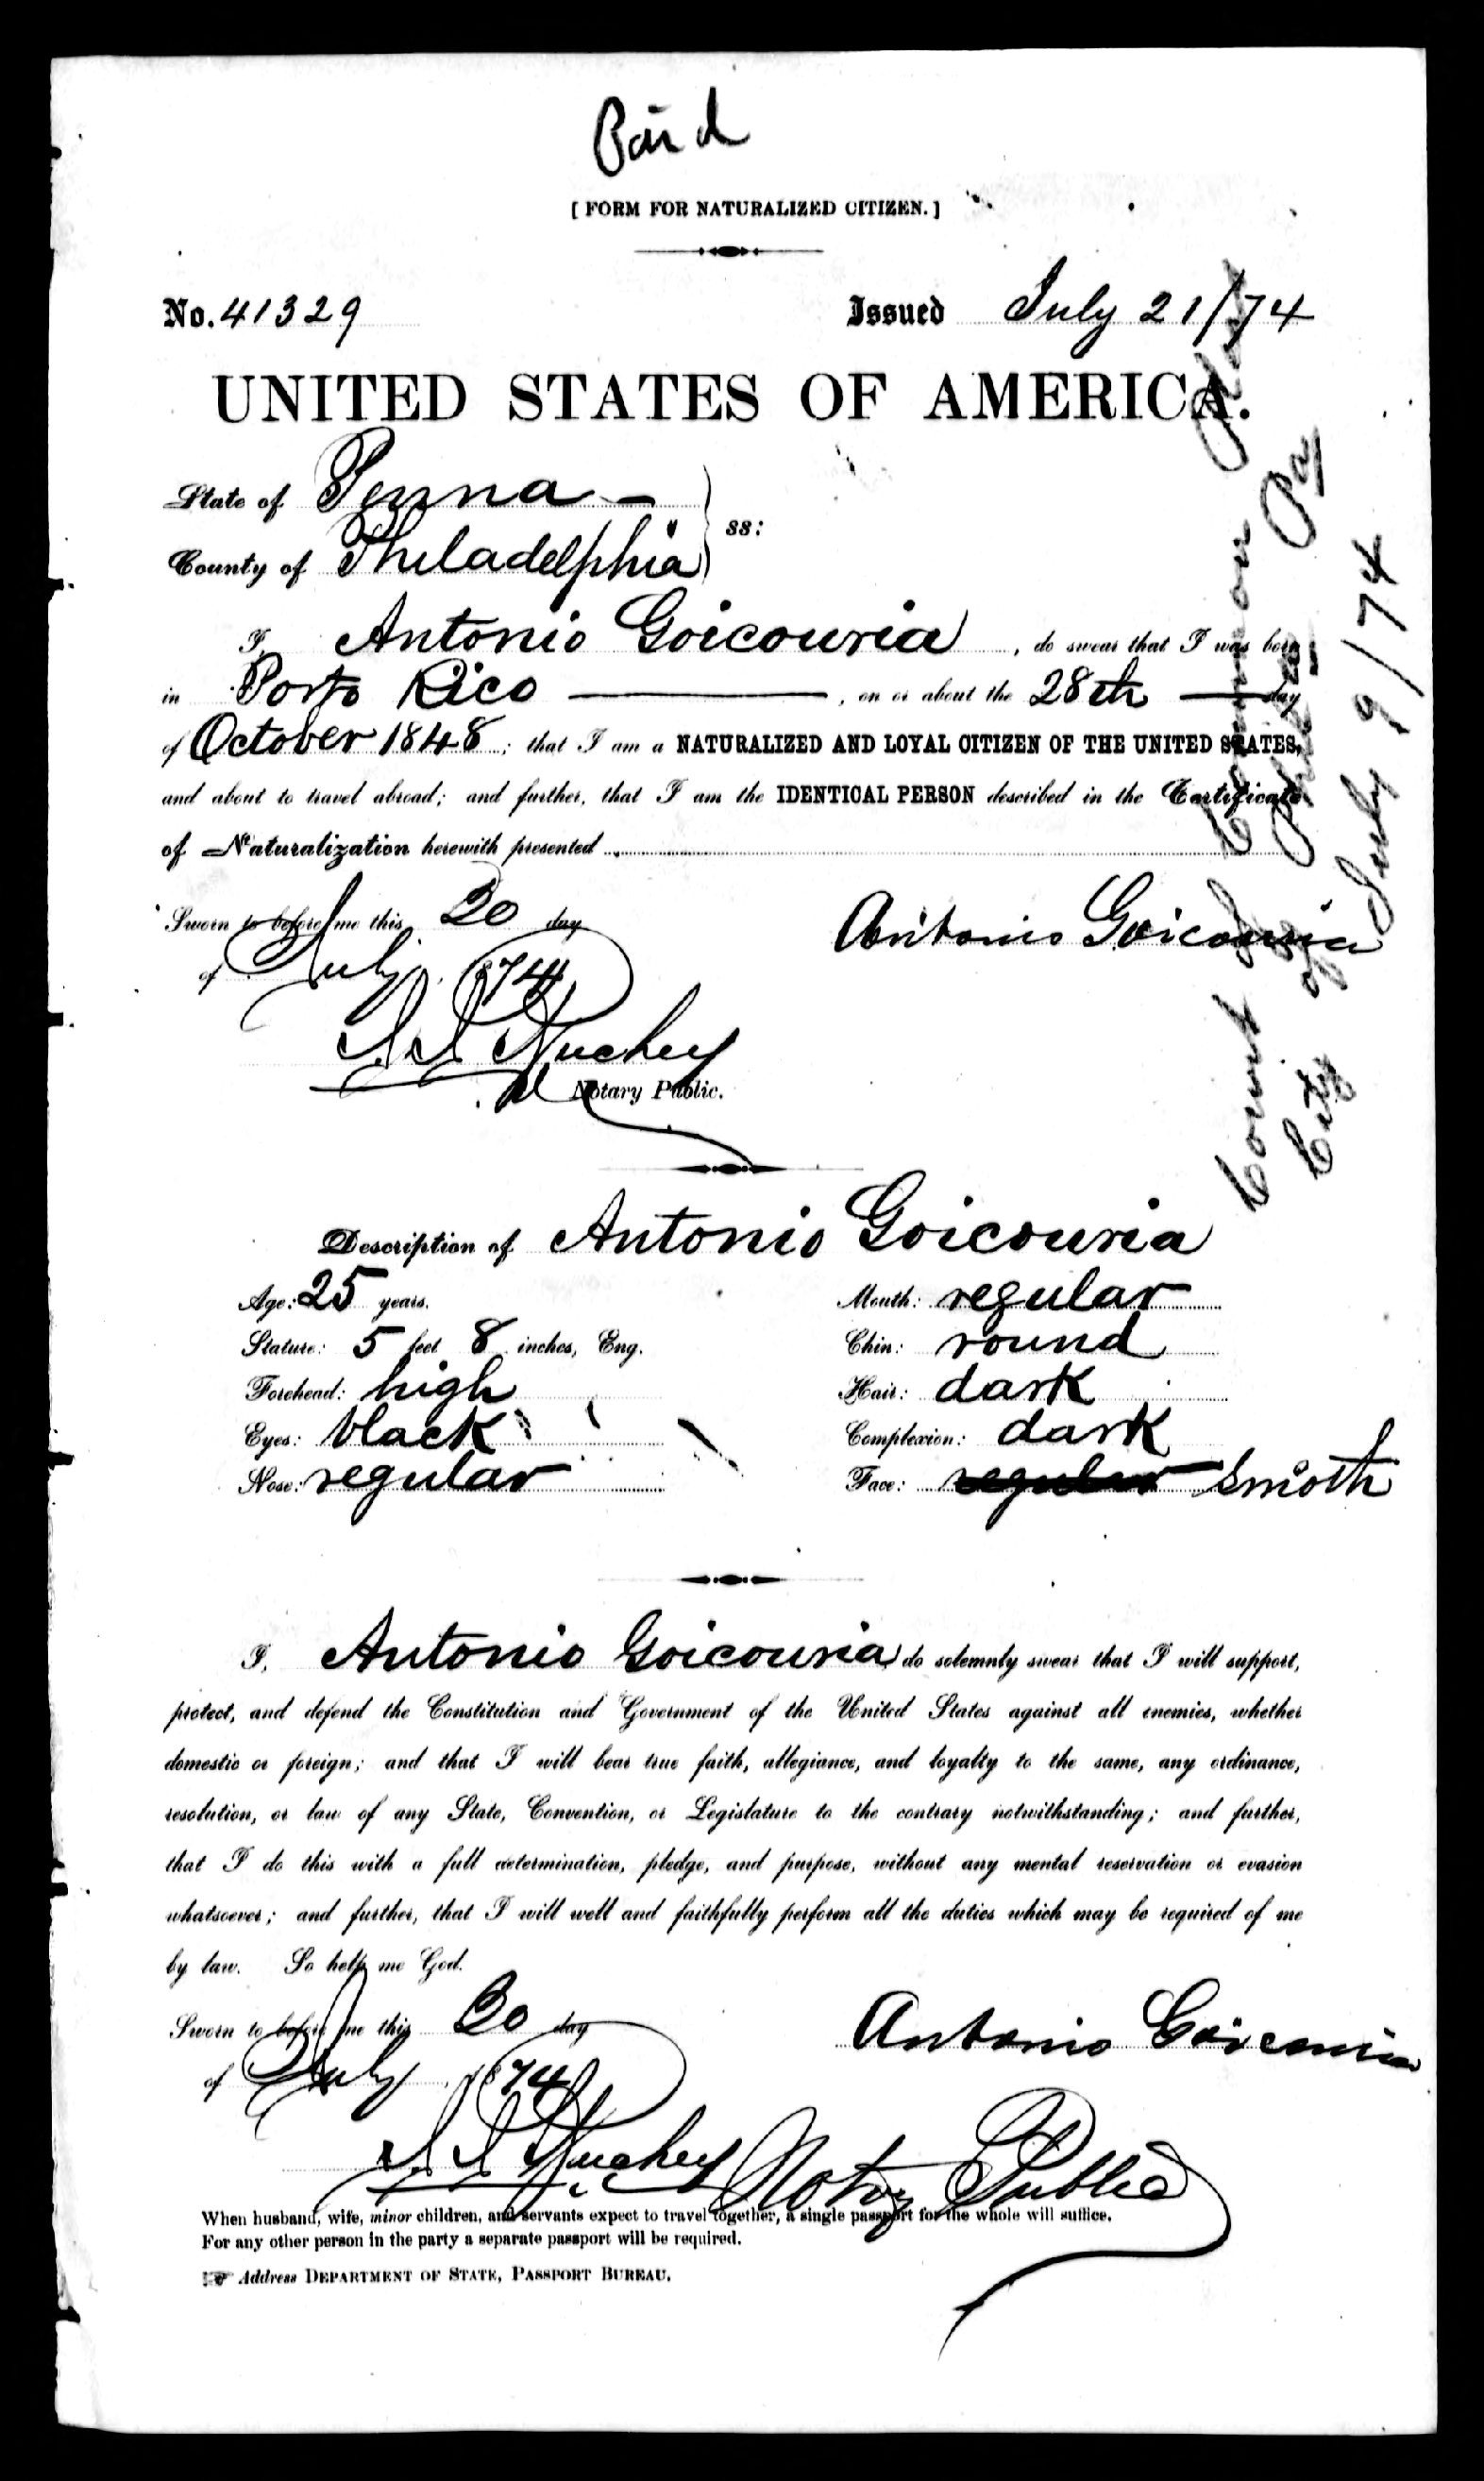 Paid
[ FORM FOR NATURALIZED CITIZEN. ]
No. 41329 Issued July 21/74
UNITED STATES OF AMERICA.
State of Penna —
County of Philadelphia } ss:
I, Antonio Goicouria, do swear that I was born
in Porto Rico ———, on or about the 28th — day
of October 1848; that I am a NATURALIZED AND LOYAL CITIZEN OF THE UNITED STATES,
and about to travel abroad; and further, that I am the IDENTICAL PERSON described in the Certificate
of Naturalization herewith presented.
Sworn to before me this 20 day
of July, 1874
Antonio Goicouria
Notary Public.
Court of Common Pleas
City of Phila Pa
July 9/74
Description of Antonio Goicouria
Age: 25 years. Mouth: regular
Stature: 5 feet 8 inches, Eng. Chin: round
Forehead: high Hair: dark
Eyes: black Complexion: dark
Nose: regular Face: regular smoth
I, Antonio Goicouria do solemnly swear that I will support,
protect, and defend the Constitution and Government of the United States against all enemies, whether
domestic or foreign; and that I will bear true faith, allegiance, and loyalty to the same, any ordinance,
resolution, or law of any State, Convention, or Legislature to the contrary notwithstanding; and further,
that I do this with a full determination, pledge, and purpose, without any mental reservation or evasion
whatsoever; and further, that I will well and faithfully perform all the duties which may be required of me
by law. So help me God.
Sworn to before me this 20 day
of July, 1874
Antonio Goicouria
Notry Public
When husband, wife, minor children, and servants expect to travel together, a single passport for the whole will suffice.
For any other person in the party a separate passport will be required.
☞ Address DEPARTMENT OF STATE, PASSPORT BUREAU.